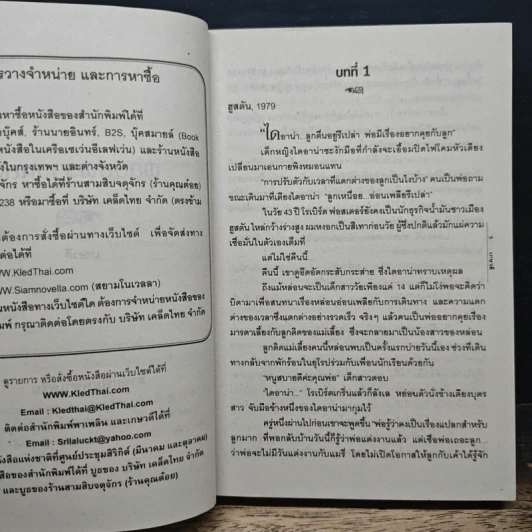 รวางจำหน่าย และการหาซื้อ
หาซื้อหนังสือของสำนักพิมพ์ได้ที่
บุ๊คส์, ร้านนายอินทร์, B2S, บุ๊คสมายล์ (Book
หนังสือในเครือเซเว่นอีเลฟเว่น) และร้านหนังสือ
ในกรุงเทพฯ และต่างจังหวัด
จักร หาซื้อได้ที่ร้านสามสิบจตุจักร (ร้านคุณต๋อย)
238 หรือมาซื้อที่ บริษัท เคล็ดไทย จำกัด (ตรงข้าม
ต้องการสั่งซื้อผ่านทางเว็บไซต์ เพื่อจัดส่งทาง
ต่อได้ที่
WWW.KledThai.com
www.Siamnovella.com (สยามโนเวลลา)
หนังสือทางเว็บไซต์ใด ต้องการจำหน่ายหนังสือของ
พิมพ์ กรุณาติดต่อโดยตรงกับ บริษัท เคล็ดไทย จำกัด
ดูรายการ หรือสั่งซื้อหนังสือผ่านเว็บไซต์ได้ที่
www.KledThai.com
Email : Kledthai@KledThai.com
ติดต่อสำนักพิมพ์พาเพลิน และเกษวดีได้ที่
Email : Srilaluckt@yahoo.com
หนังสือแห่งชาติที่ศูนย์ประชุมสิริกิติ์ (มีนาคม และตุลาคม)
ซื้อของสำนักพิมพ์ได้ที่ บูธของ บริษัท เคล็ดไทย จำกัด
และบูธของร้านสามสิบจตุจักร (ร้านคุณต๋อย)
บทที่ 1
ฮูสตัน, 1979
"ไดอาน่า...ลูกตื่นอยู่รึเปล่า พ่อมีเรื่องอยากคุยกับลูก"
เด็กหญิงไดอาน่าชะงักมือที่กำลังจะเอื้อมปิดไฟโคมหัวเตียง
เปลี่ยนมาเอนกายพิงหมอนแทน
"การปรับตัวกับเวลาที่แตกต่างของลูกเป็นไงบ้าง" คนเป็นพ่อถาม
ขณะเดินมาที่เตียงไดอาน่า "ลูกเหนื่อย...อ่อนเพลียรึเปล่า"
ในวัย 43 ปี โรเบิร์ต ฟอสเตอร์ยังคงเป็นนักธุรกิจน้ำมันชาวเมือง
ฮูสตัน ไหล่กว้างร่างสูง ผมหงอกเป็นสีเทาก่อนวัย ผู้ซึ่งปกติแล้วมักแผ่ความ
เชื่อมั่นในตัวเองเต็มที่
แต่ไม่ใช่คืนนี้
คืนนี้ เขาดูอึดอัดกระสับกระส่าย ซึ่งไดอาน่าทราบเหตุผล
ถึงแม้หล่อนจะเป็นเด็กสาววัยเพียงแค่ 14 แต่ก็ไม่โง่พอจะคิดว่า
บิดามาเพื่อสนทนาเรื่องหล่อนอ่อนเพลียกับการเดินทาง และความแตก
ต่างของเวลาซึ่งแตกต่างอย่างรวดเร็ว จริงๆ แล้วคนเป็นพ่ออยากคุยเรื่อง
มารดาเลี้ยงกับลูกติดของแม่เลี้ยง ซึ่งจะกลายมาเป็นน้องสาวของหล่อน
ลูกติดแม่เลี้ยงคนนี้หล่อนพบเป็นครั้งแรกบ่ายวันนี้เอง ช่วงที่เดิน
ทางกลับจากพักร้อนในยุโรปร่วมกับเพื่อนนักเรียนด้วยกัน
"หนูสบายดีค่ะคุณพ่อ" เด็กสาวตอบ
"ไดอาน่า..." โรเบิร์ตเกริ่นแล้วก็ลังเล หย่อนตัวนั่งข้างเตียงบุตร
สาว จับมือข้างหนึ่งของไดอาน่ามากุมไว้
ครู่หนึ่งผ่านไปก่อนเขาจะพูดขึ้น "พ่อรู้ว่าคงเป็นเรื่องแปลกสำหรับ
ลูกมาก ที่พอกลับบ้านวันนี้ก็รู้ว่าพ่อแต่งงานแล้ว แต่เชื่อพ่อเถอะลูก...
ว่าพ่อจะไม่มีวันแต่งงานกับแมรี่ โดยไม่เปิดโอกาสให้ลูกกับเค้าได้รู้จัก
5 เกษวดี